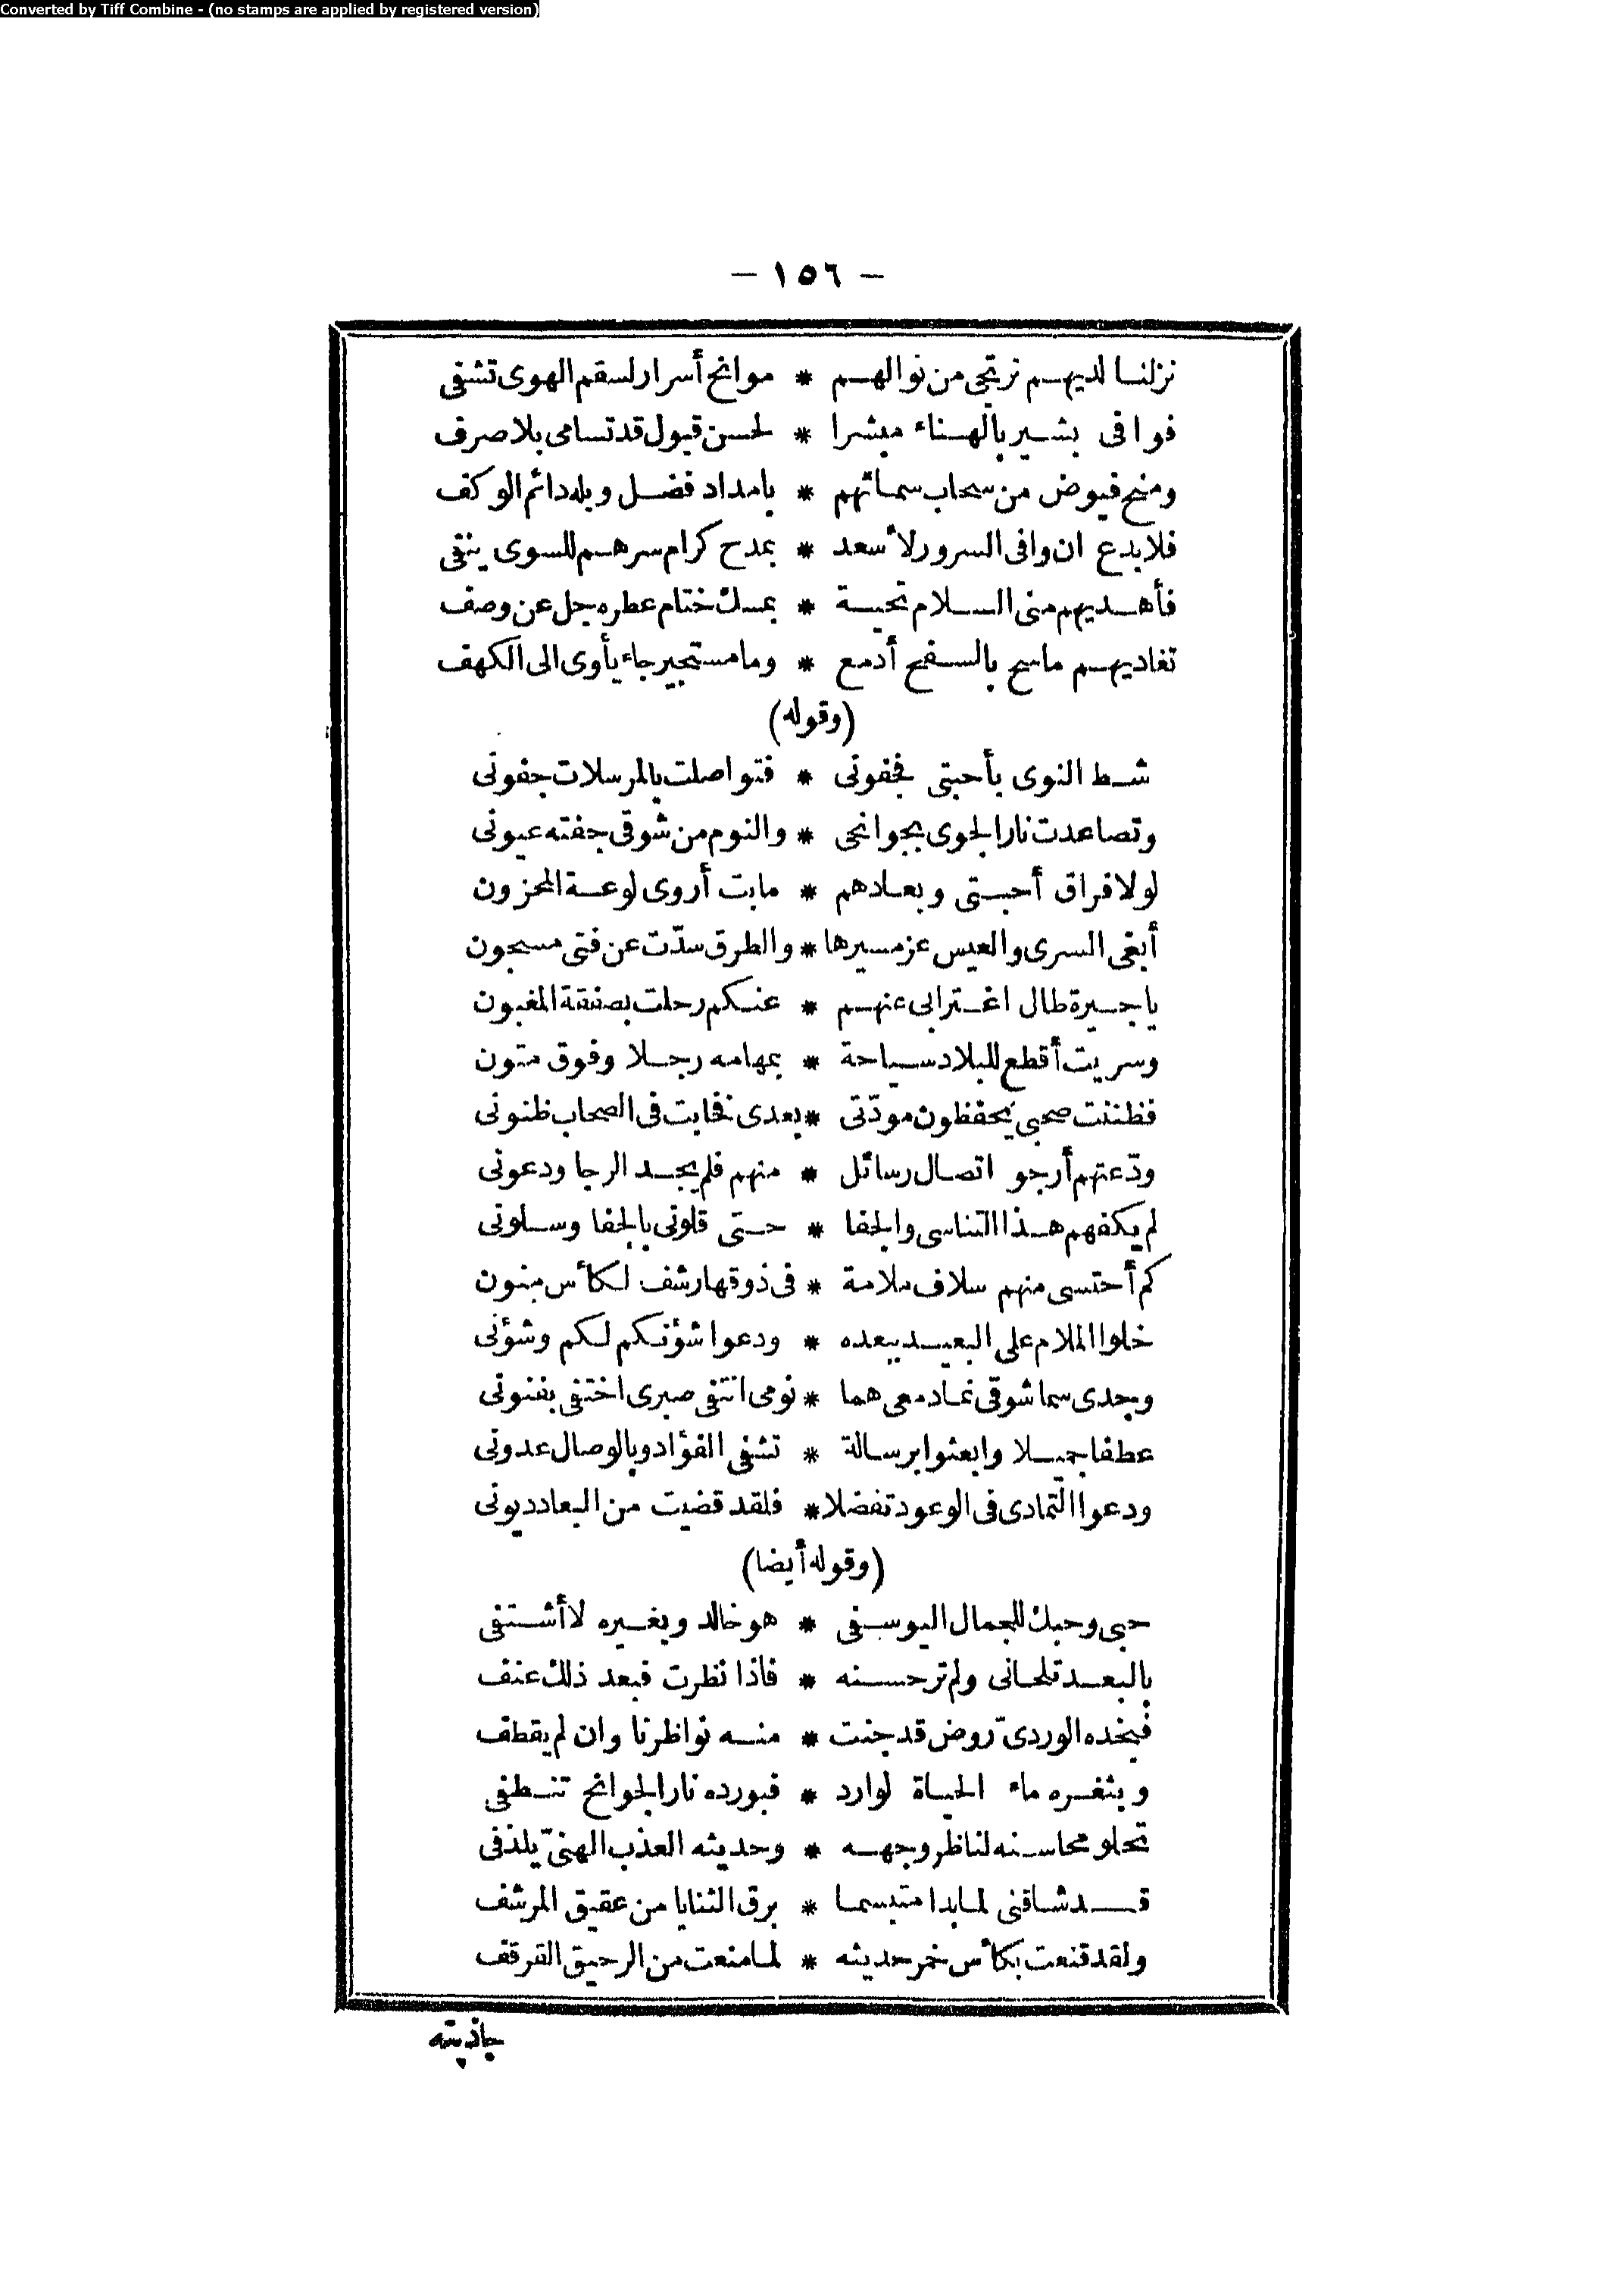 Converted by Tiff Combine - (no stamps are applied by registered version)
— ١٥٦ —
نزلنا لديهم نرتجى من نوالهم * موانح أسرار لسقم الهوى تشفى
فوافى بشير بالهناء مبشرا * لحسن قبول قد تسامى بلا صرف
ومنح فيوض من سحاب سمائهم * بامداد فضل وبله دائم الوكف
فلا بدع ان وافى السرور لأسعد * بمدح كرام سرهم للسوى ينفى
فأهديهم منى السلام تحية * بمسك ختام عطره جل عن وصف
تغاديهم ما سح بالسفح أدمع * وما مستجير جاء يأوى الى الكهف
(وقوله)
شط النوى بأحبتى فجفونى * فتواصلت بالمرسلات جفونى
وتصاعدت نار الجوى بجوانحى * والنوم من شوقى جفته عيونى
لولا فراق أحبتى وبعادهم * ما بت أروى لوعة المحزون
أبغى السرى والعيس عز مسيرها * والطرق سدّت عن فتى مسجون
يا جيرة طال اغترابى عنهم * عنكم رحلت بصفقة المغبون
وسريت أقطع للبلاد سياحة * بمهامه رجلا وفوق متون
فظننت صحبى يحفظون مودّتى * بعدى فخابت فى الصحاب ظنونى
ودّعتهم أرجو اتصال رسائل * منهم فلم يجد الرجا ودعونى
لم يكفهم هذا التناسى والجفا * حتى قلونى بالجفا وسلونى
كم أحتسى منهم سلاف ملامة * فى ذوقها رشف لكأس منون
خلوا الملام على البعيد ببعده * ودعوا شؤنكم لكم وشؤنى
وجدى سما شوقى نما دمعى هما * نومى انتفى صبرى اختفى بفنونى
عطفا جميلا وابعثوا برسالة * تشفى الفؤاد وبالوصال عدونى
ودعوا التمادى فى الوعود تفضلا * فلقد قضيت من البعاد ديونى
(وقوله أيضا)
حبى وحبك للجمال اليوسفى * هو خالد وبغيره لا أشتفى
بالبعد تلحانى ولم تر حسنه * فاذا نظرت فبعد ذلك عنف
فبخده الوردىّ روض قد جنت * منه نواظرنا وان لم يقطف
وبثغره ماء الحياة لوارد * فبورده نار الجوانح تنطفى
تحلو محاسنه لناظر وجهه * وحديثه العذب الهنىّ يلذ فى
قد شاقنى لما بدا متبسما * برق الثنايا من عقيق المرشف
ولقد قنعت بكأس خمر حديثه * لما منعت من الرحيق القرقف
جاذبته